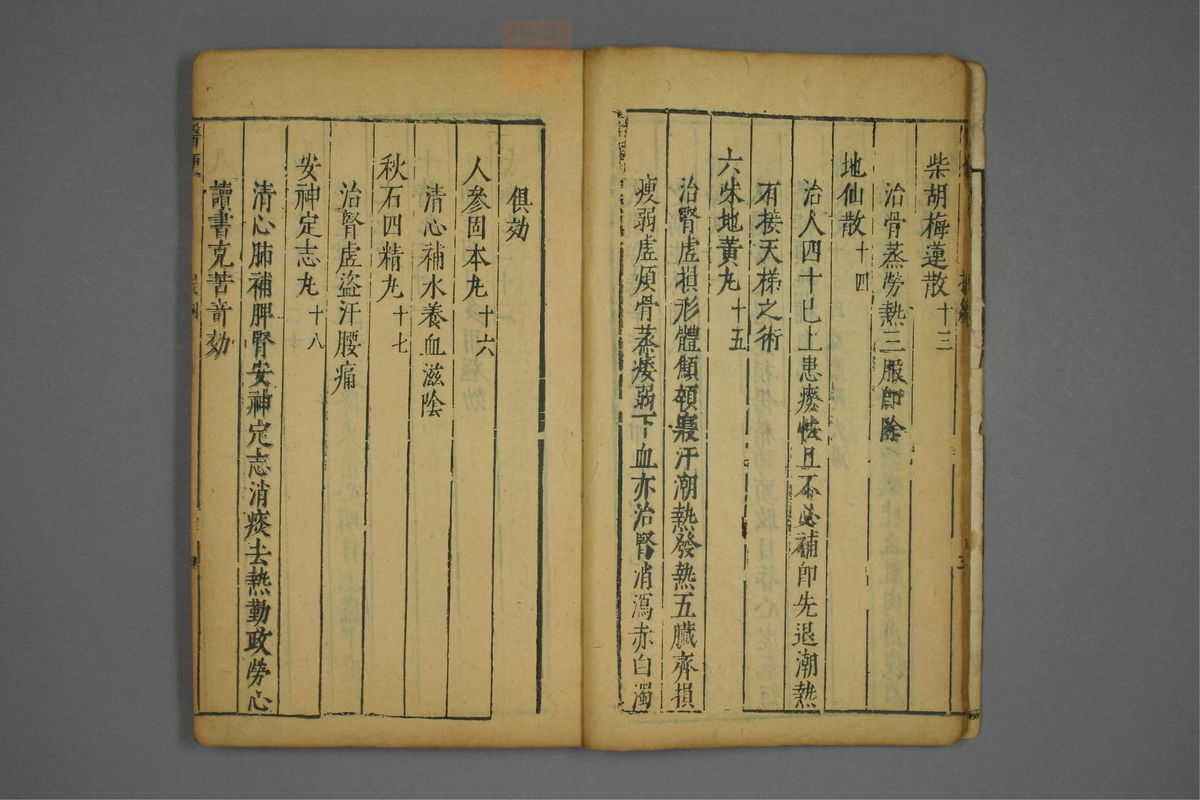 柴胡梅蓮散十三
治骨蒸勞熱三服即除
地仙散十四
治人四十已上患癆怯且不必補即先退潮熱
有接天梯之術
六味地黃丸十五
治腎虛損形體顦頓寢汗潮熱發熱五臟齊損
瘦弱虛煩骨蒸痿弱下血亦治腎消瀉赤白濁
俱効
人參固本丸十六
清心補水養血滋陰
秋石四精丸十七
治腎虛盜汗腰痛
安神定志丸十八
清心肺補脾腎安神定志消痰去熱勤政勞心
讀書克苦音効